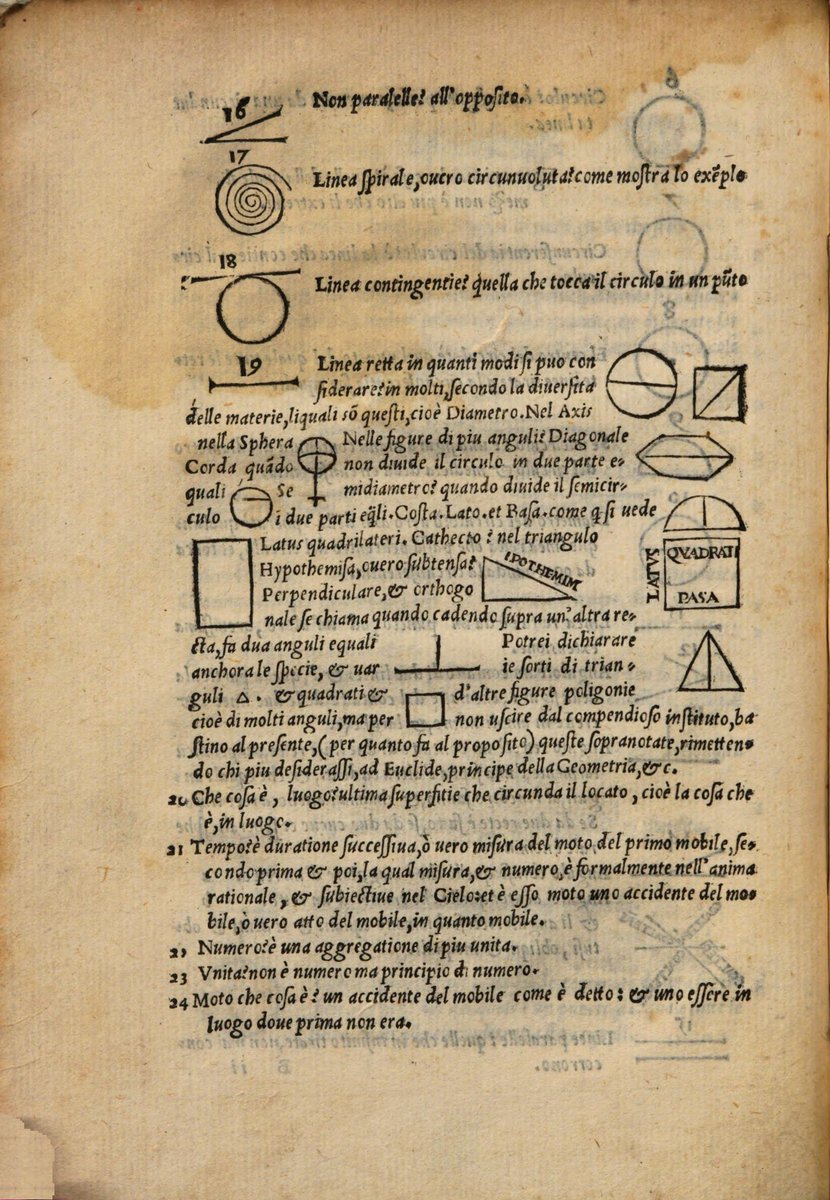 16 Non paralelle? all'opposito.
17
Linea spirale, ouero circunuoluta? come mostra lo exẽplo
18
Linea contingentie? q̃uella che tocca il circulo in un pũto
19 Linea retta in quanti modi si puo con
siderare? in molti, secondo la diuersita
delle materie, liquali sõ questi, cioè Diametro. Nel Axis
nella Sphera Nelle figure di piu anguli è Diagonale
Corda quãdo non diuide il circulo in due parte e-
quali Se midiametro? quando diuide il semicir-
culo i due parti eq̃li. Costa. Lato. et Basa. come q si uede
Latus quadrilateri. Cathecto? nel triangulo
Hypothemisa, ouero subtensa?
IPOTHEMIM
LATVS
QVADRATI
PASA
Perpendiculare, & orthogo
nale se chiama quando cadendo supra un'altra re-
cta, fa dua anguli equali Potrei dichiarare
anchora le specie, & uar ie sorti di trian-
guli △. & quadrati & d'altre figure poligonie
cioè di molti anguli, ma per non uscire dal compendioso instituto, ba
stino al presente, (per quanto fa al proposito) queste sopranotate, rimetten-
do chi piu desiderassi, ad Euclide, principe della Geometria, &c.
20 Che cosa è, luogo? ultima superfitie che circunda il locato, cioè la cosa che
è, in luogo.
21 Tempo? è duratione successiua, ò uero misura del moto del primo mobile, se-
condo prima & poi, la qual misura, & numero, è formalmente nell'anima
rationale, & subiectiue nel Cielo: et è esso moto uno accidente del mo-
bile, ò uero atto del mobile, in quanto mobile.
22 Numero? è una aggregatione di piu unita.
23 Vnita? non è numero ma principio di numero.
24 Moto che cosa è? un accidente del mobile come è detto: & uno essere in
luogo doue prima non era.